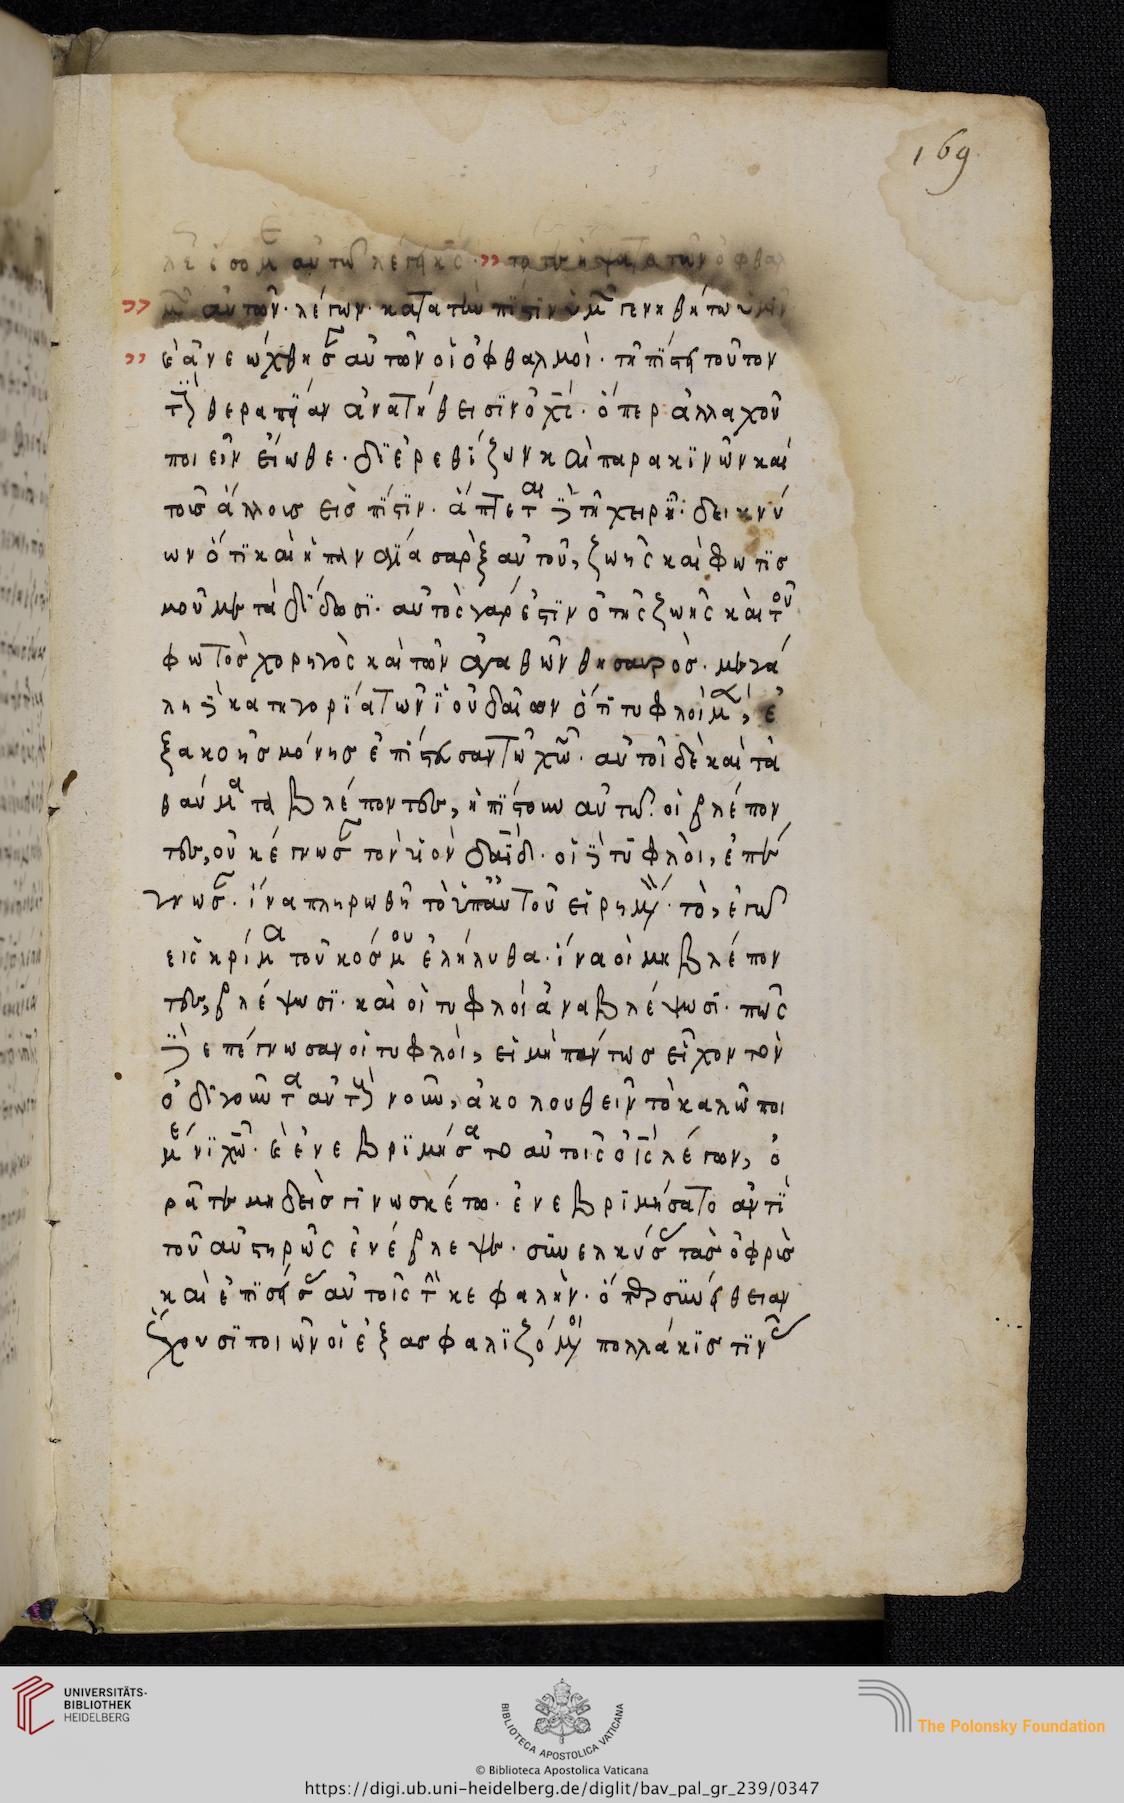 169
αὐτῶ λέγει κε· τότε ἥψατο τῶν ὀφθαλ
μῶν αὐτῶν· λέγων· κατὰ τὴν πίστιν ὑμῶν γενηθήτω ὑμῖν
ἐὰν νεώχθησαν αὐτῶν οἱ ὀφθαλμοὶ· τῆ πίστει τοῦτον
τὴν θεραπείαν ἀνατίθεισιν ὁ χς· ὅπερ ἀλλαχοῦ
ποιεῖν εἴωθε· διερεθίζων καὶ παρακινῶν καὶ
τοῖς ἄλλοις εἰς πίστιν· ἅπτεται δὲ τῆ χειρὶ· δεικνύ
ων ὅτι καὶ ἡ παναγία σαρξ αὐτοῦ, ζωῆς καὶ φωτισ
μοῦ μεταδίδωσι· αὐτὸς γάρ ἐστιν ὁ τῆς ζωῆς καὶ τοῦ
φωτὸς χορηγὸς καὶ τῶν ἀγαθῶν θησαυρὸς· μεγά
λη δὲ κατηγορία τῶν ἰουδαίων ὅτι τυφλοὶ μὲν, ἐ
ξ ἀκοῆς μόνης ἐπίστευσαν τῶ χῶ· αὐτοὶ δὲ καὶ τὰ
θαύματα βλέποντες, ἠπίστουν αὐτῶ· οἱ βλέπον
τες, οὐκ ἔγνωσαν τὸν υἱὸν δαδ· οἱ δὲ τυφλοὶ, ἐπέ
γνωσαν· ἵνα πληρωθῆ τὸ ὑπ' αὐτοῦ εἰρημένον· τὸ, ἐγὼ
εἰς κρίμα τοῦ κόσμου ἐλήλυθα· ἵνα οἱ μὴ βλέπον
τες, βλέψωσι· καὶ οἱ τυφλοί ἀναβλέψωσι· πῶς
δὲ ἐπέγνωσαν οἱ τυφλοί, εἰ μὴ πάντως εἶχον τὸν
ὁδιγοῦντα αὐτὴν νοῦν, ἀκολουθεῖν τὸ καλῶ ποι
μένι χῶ· ἐὰν ἐνεβριμήσατο αὐτοῖς ὁ ις λέγων, ὁ
ρᾶτε μηδεὶς γινωσκέτω· ἐνεβριμήσατο ἀντὶ
τοῦ αὐστηρῶς ἐνέβλεψε· συνελκύσας τὰς ὀφρῦς
καὶ ἐπισείσας αὐτοῖς τὴν κεφαλὴν· ὅπερ συνήθειαν
ἔχουσι ποιῶν οἱ ἐξασφαλιζόμενοι πολλάκις τινας
UNIVERSITÄTS-
BIBLIOTHEK
HEIDELBERG
BIBLIOTECA APOSTOLICA VATICANA
The Polonsky Foundation
© Biblioteca Apostolica Vaticana
https://digi.ub.uni-heidelberg.de/diglit/bav_pal_gr_239/0347